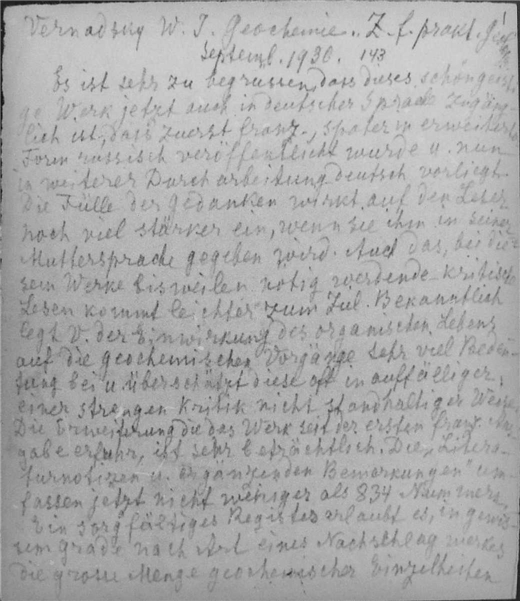 Vernadzky W. J. Geochemie. Z. f. prakt. Geol.
Septembl. 1930. 143
Es ist sehr zu begrussen, dass dieses schöngeisti-
ge Werk jetzt auch in deutscher Sprache zugäng-
lich ist, dass zuerst franz., später in erweiterter
Form russisch veröffentlicht wurde u. nun
in weiterer Durcharbeitung deutsch vorliegt.
Die Fülle der Gedanken wirkt auf den Leser
noch viel stärker ein, wenn sie ihm in seiner
Muttersprache gegeben wird. Auch das, bei die-
sem Werke bisweilen nötig werdende kritische
Lesen kommt leichter zum Zul. Bekanntlich
legt V. der Einwirkung des organischen Lebens
auf die geochemischen Vorgänge sehr viel Bedeu-
tung bei u. überschätzt diese oft in auffälliger,
einer strengen Kritik nicht standhaltiger Weise.
Die Erweiterung die das Werk seit der ersten franz. Aus-
gabe erfuhr, ist sehr beträchtlich. Die „Litera-
turnotizen u. ergänzenden Bemerkungen" um-
fassen jetzt nicht weniger als 834 Nummern.
Ein sorgfältiges Register erlaubt es, in gewis-
sem grade nach Art eines Nachschlagwerkes
die grosse Menge geochemischer Einzelheiten